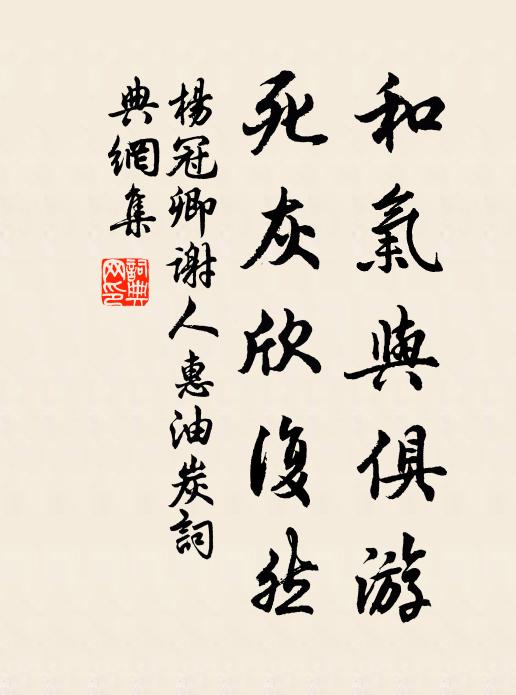 和氣與俱游
死灰欣復然
楊冠卿謝人惠油炭詞
典網集
詞典
网印